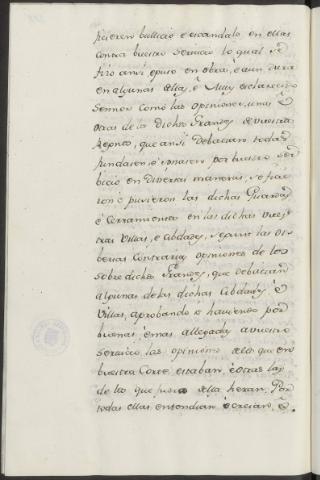 ficieren bullicio e escandalo en ellas
contra vuestro servicio lo qual se
fizo ansi e puso en obra, e aun dura
en algunas dellas, e Muy esclarecido
Sennor como las opiniones, unas e
otras de los dichos Grandes de vuestro
Regno, que ansi debatian todas
fundasen, e tomasen por vuestro ser
bicio en diversas maneras, se ficie
ron e pusieron las dichas Guardas
e Cerramientos en las dichas vues
tras Villas, e Cibdades, segunt las di
bersas Contrarias opiniones de los
sobredichos Grandes, que debatian
algunas de las dichas Cibdades e
Villas, aprobando e haviendo por
buenas e mas allegadas a vuestro
servicio las opiniones de los que en
vuestra Corte estaban, e otras las
de los que fuera della heran, Por
todas ellas entendian e creian, e